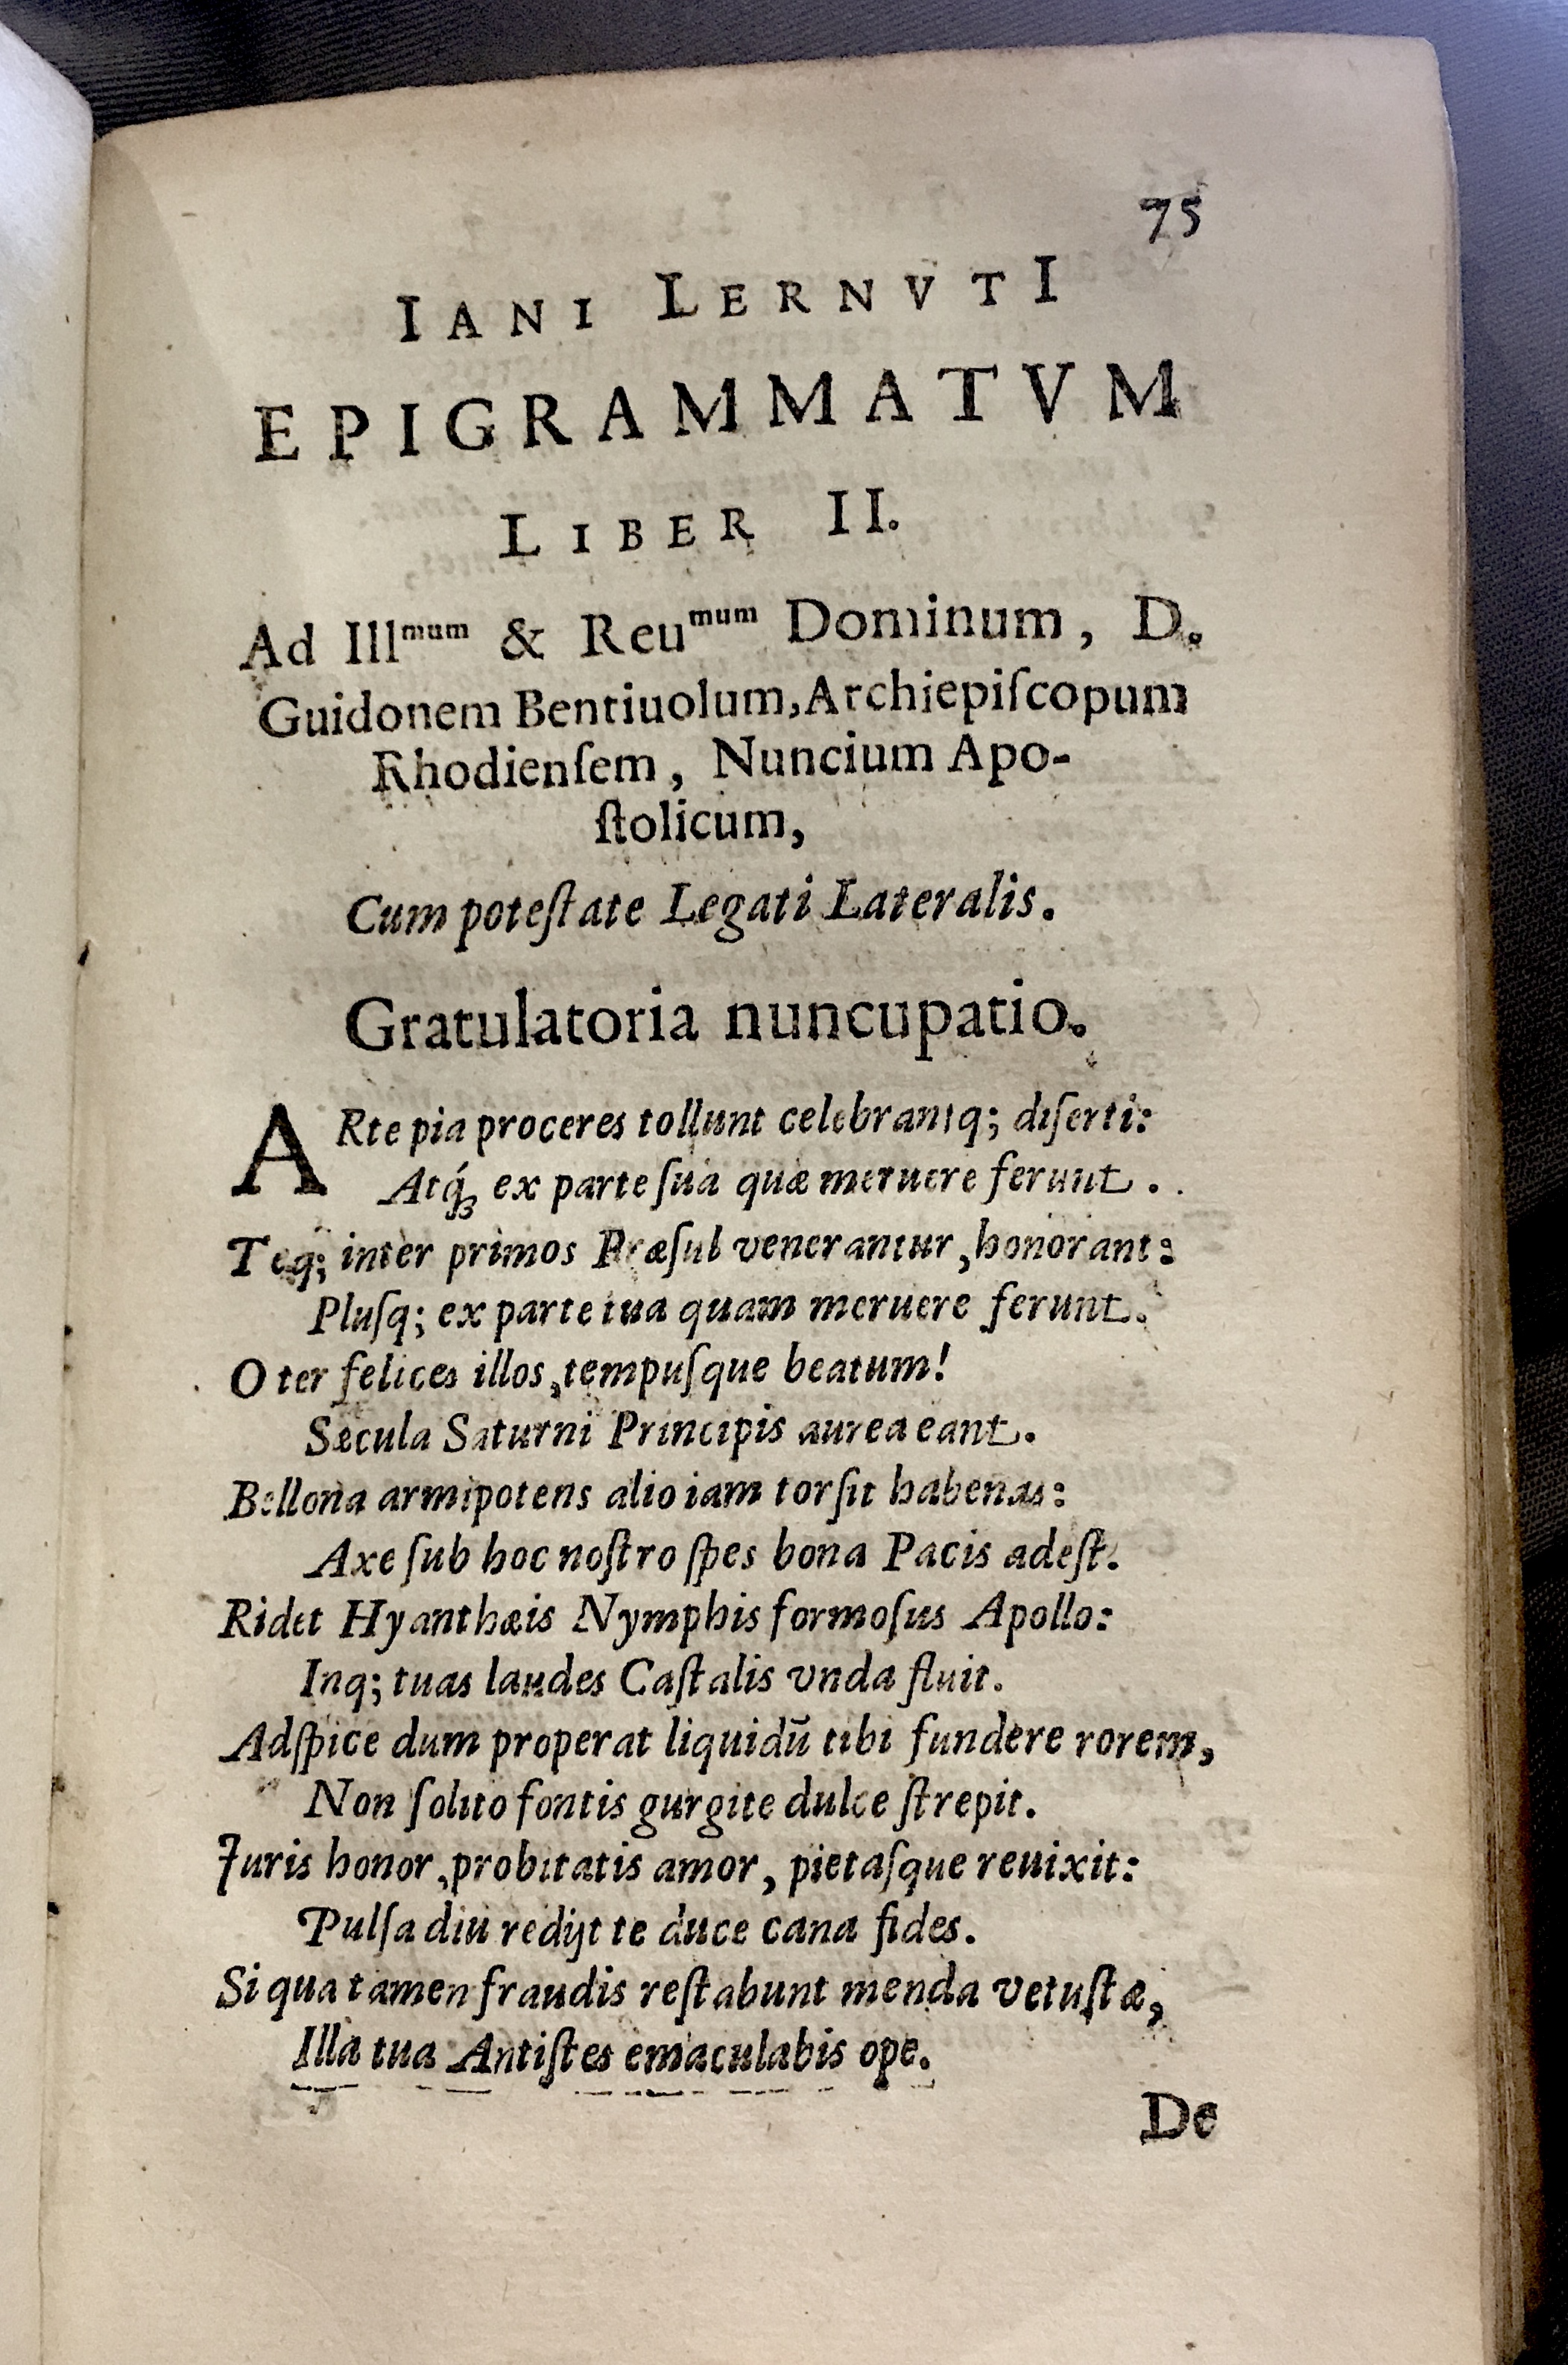 75
IANI LERNVTI
EPIGRAMMATVM
LIBER II.
Ad Illmum & Reumum Dominum, D.
Guidonem Bentiuolum, Archiepiſcopum
Rhodienſem, Nuncium Apo-
ſtolicum,
Cum poteſtate Legati Lateralis.
Gratulatoria nuncupatio.
ARte pia proceres tollunt celebrantq; diſerti:
Atq́; ex parte ſua quæ meruere ferunt.
Teq; inter primos Præſul venerantur, honorant:
Pluſq; ex parte tua quam meruere ferunt.
O ter felices illos, tempuſque beatum!
Sæcula Saturni Principis aurea eant.
Bellona armipotens alio iam torſit habenas:
Axe ſub hoc noſtro ſpes bona Pacis adeſt.
Ridet Hyanthæis Nymphis formoſus Apollo:
Inq; tuas laudes Caſtalis vnda fluit.
Adſpice dum properat liquidū tibi fundere rorem,
Non ſolito fontis gurgite dulce ſtrepit.
Iuris honor, probitatis amor, pietaſque reuixit:
Pulſa diu redijt te duce cana fides.
Si qua tamen fraudis reſtabunt menda vetuſtæ,
Illa tua Antiſtes emaculabis ope.
De